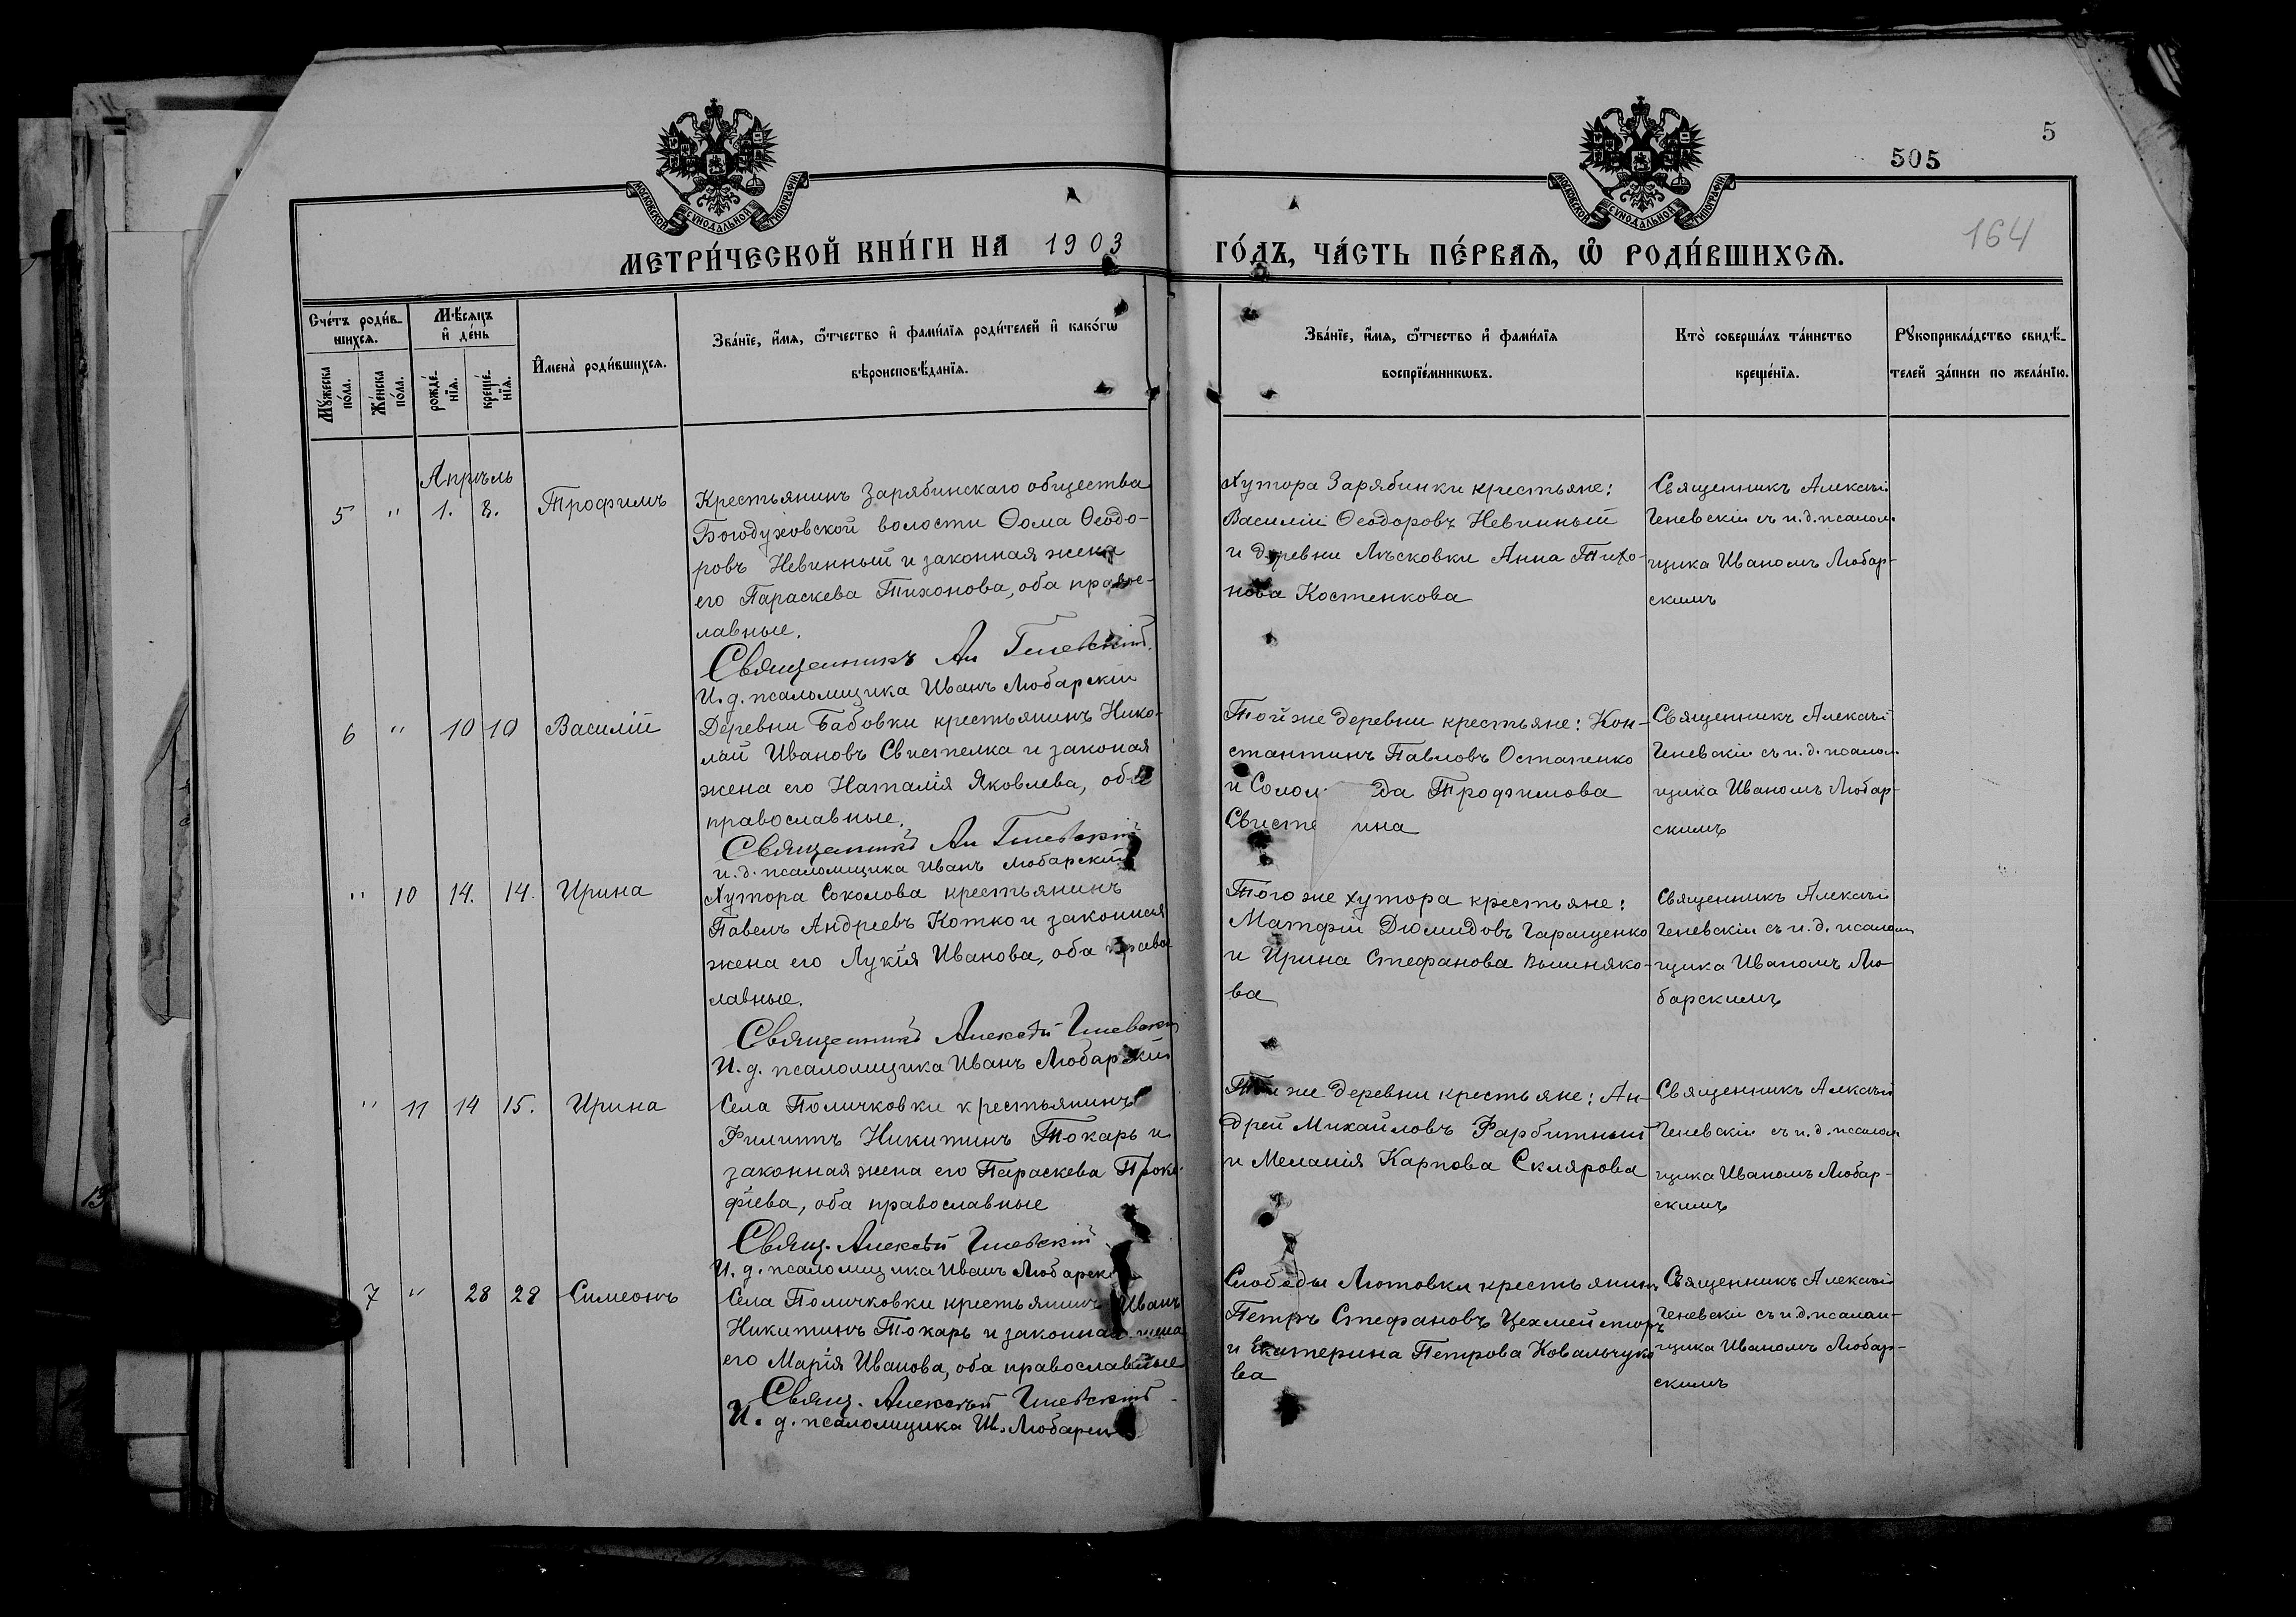 5
505
164
МОСКОВСКОЙ СѴНОДАЛЬНОЙ ТИПОГРАФІИ
МОСКОВСКОЙ СѴНОДАЛЬНОЙ ТИПОГРАФІИ
МЕТРИ́ЧЕСКОЙ КНИ́ГИ НА 1903
ГО́ДЪ, ЧА́СТЬ ПЕ́РВАѦ, Ѡ҆ РОДИ́ВШИХСѦ.
Сче́тъ роди́в-
шихсѧ.
Мꙋ́жеска
по́ла.
Же́нска
по́ла.
Мѣ́сѧцъ
и҆ де́нь
рожде́-
нїѧ.
креще́-
нїѧ.
И҆мена̀ роди́вшихсѧ.
Зва́нїе, и҆́мѧ, ѻ҆́тчество и҆ фами́лїѧ роди́телей и҆ како́гѡ
вѣроисповѣ́данїѧ.
Зва́нїе, и҆́мѧ, ѻ҆́тчество и҆ фами́лїѧ
воспрїе́мникѡвъ.
Кто̀ соверша́лъ та́инство
креще́нїѧ.
Рꙋкоприкла́дство свидѣ́-
телей за́писи по жела́нїю.
Апрѣль
5 " 1. 8. Трофимъ
Крестьянинъ Зарябинскаго общества
Богодуховской волости Ѳома Ѳеодо-
ровъ Невинный и законная жена
его Параскева Тихонова, оба правос-
лавные.
Священникъ Ал Гневскій
И. д. псаломщика Иванъ Любарскій
Хутора Зарябинки крестьяне:
Василій Ѳеодоровъ Невинный
и деревни Лѣсковки Анна Тихо-
нова Костенкова
Священникъ Алексѣй
Гневскій съ и. д. псалом-
щика Иваномъ Любар-
скимъ
6 " 10 10 Василій
Деревни Бабовки крестьянинъ Нико-
лай Ивановъ Свистелка и законая
жена его Наталія Яковлева, оба
православные.
Священникъ Ал Гневскій
и. д. псаломщика Иванъ Любарскій
Той же деревни крестьяне: Кон-
стантинъ Павловъ Остапенко
и Солом да Трофимова
Свисте ина
Священникъ Алексѣй
Гневскій съ и. д. псалом-
щика Иваномъ Любар-
скимъ
" 10 14. 14. Ирина
Хутора Соколова крестьянинъ
Павелъ Андреевъ Котко и законная
жена его Лукія Ивановa, оба правос
лавные.
Священникъ Алексѣй Гневскій
И. д. псаломщика Иванъ Любарскій
Того же хутора крестьяне:
Матфій Дюмидовъ Гаращенко
и Ирина Стефанова Вишняко-
ва
Священникъ Алексѣй
Гневскій съ и. д. псалом
щика Иваномъ Лю
барскимъ
" 11 14 15. Ирина
Села Поличковки крестьянинъ
Филиппъ Никитинъ Токарь и
законная жена его Параскева Проко-
фіева, оба православные
Свящ. Алексѣй Гневскій
И. д. псаломщика Иванъ Любарск
Той же деревни крестьяне: Ан-
дрей Михайловъ Фарбитный
и Меланія Карпова Склярова
Священникъ Алексѣй
Гневскій съ и. д. псалом
щика Иваномъ Любар-
скимъ
7 " 28 28 Симеонъ
Села Поличковки крестьянинъ Иванъ
Никитинъ Токарь и законная жена
его Марія Иванова, оба православные
Свящ. Алексѣй Гневскій
И. д. псаломщика Ив. Любарск
Слободы Лютовки крестьянинъ
Петръ Стефановъ Цехмейстеръ
и Екатерина Петрова Ковальчуко
ва
Священникъ Алексѣй
Гневскій съ и. д. псалом-
щика Иваномъ Любар-
скимъ
13